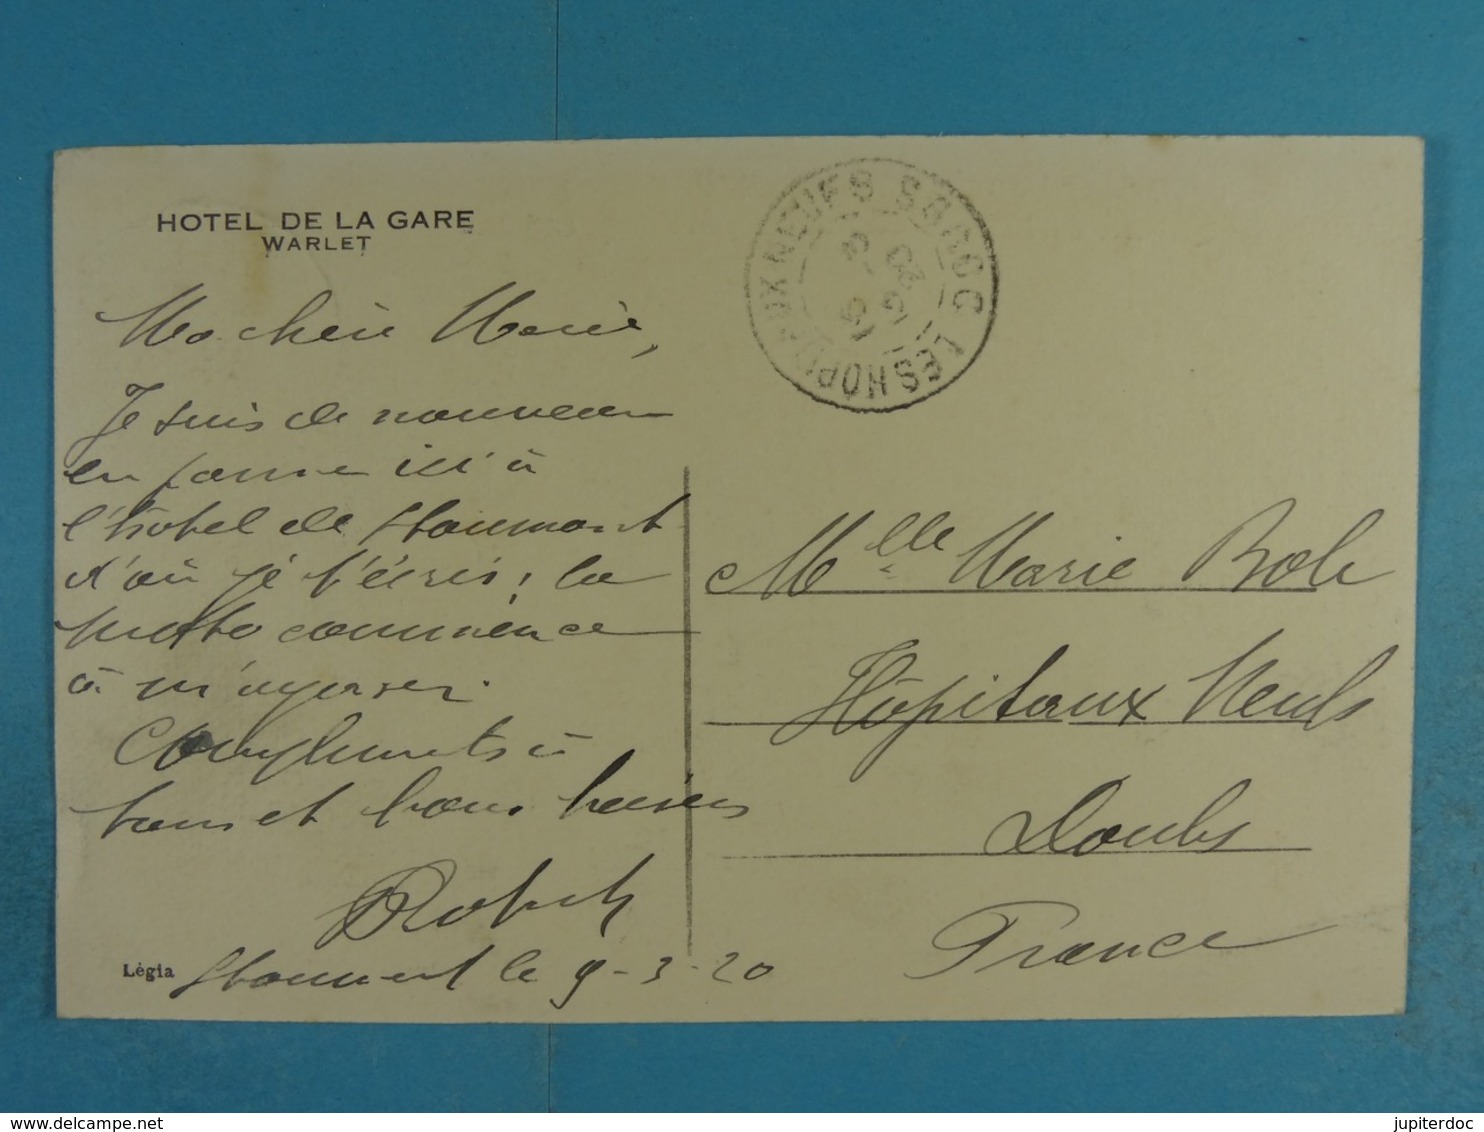 HOTEL DE LA GARE
WARLET
Ma chère Marie,
Je suis de nouveau
en panne ici à
l'hotel de Stoumont
d'où je t'écris, la
moto commence
à m'agacer.
Compliments à
tous et bons baisers
Robert
Stoumont le 9-3-20
Légia
LES HOPITAUX NEUFS
Mlle Marie
Hôpitaux Neufs
Doubs
France
www.delcampe.net
jupiterdoc